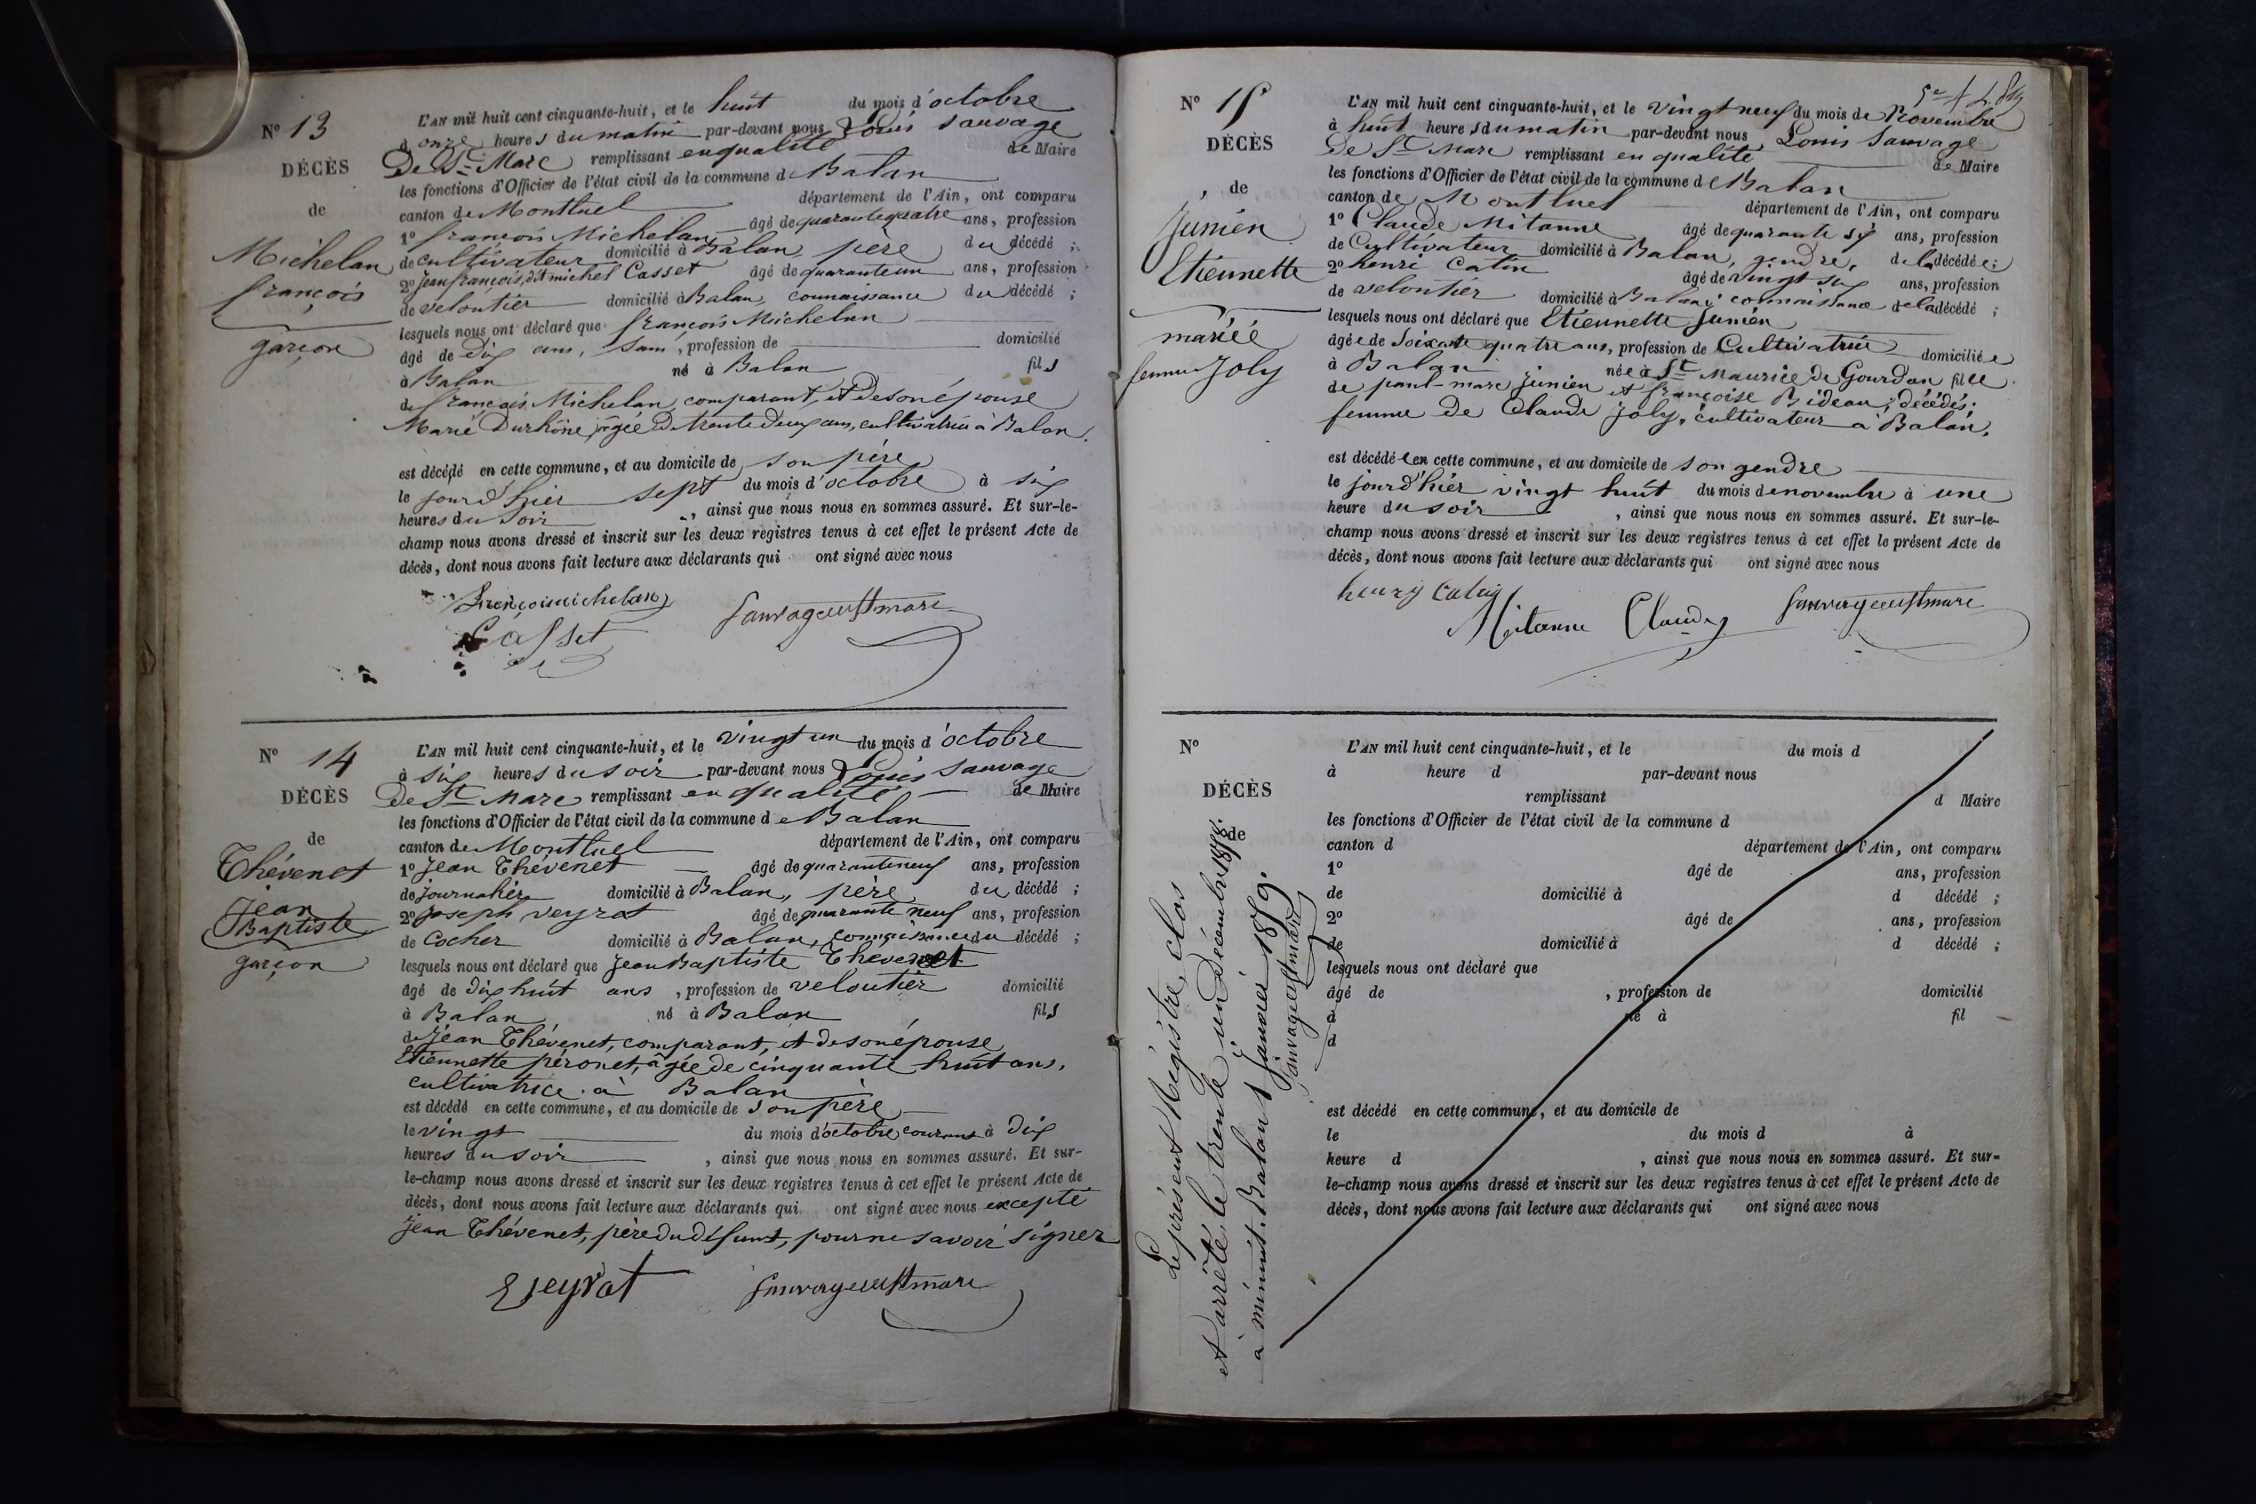 N° 13
DÉCÈS
de
Michelan
françois
garçon
L'AN mil huit cent cinquante-huit, et le huit du mois d'octobre
à onze heures du matin par-devant nous Louis Sauvage
De St Marc remplissant en qualité de Maire
les fonctions d'Officier de l'état civil de la commune de Balan
canton de Montluel département de l'Ain, ont comparu
1° françois Michelan âgé de quarante quatre ans, profession
de cultivateur domicilié à Balan, père du décédé ;
2° Jean françois, dit michel Casset âgé de quarante un ans, profession
de veloutier domicilié à Balan, connaissance du décédé ;
lesquels nous ont déclaré que françois Michelan
âgé de dix ans, sans, profession de domicilié
à Balan né à Balan fils
de françois Michelan, comparant, et de son épouse
Marie Durhône, âgée de trente deux ans, cultivatrice à Balan.
est décédé en cette commune, et au domicile de son père
le jourd'hier sept du mois d'octobre à six
heures du soir, ainsi que nous nous en sommes assuré. Et sur-le-
champ nous avons dressé et inscrit sur les deux registres tenus à cet effet le présent Acte de
décès, dont nous avons fait lecture aux déclarants qui ont signé avec nous
françoimichelan Sauvagedestmarc
Casset
N° 14
DÉCÈS
de
Thévenet
Jean
Baptiste
garçon
L'AN mil huit cent cinquante-huit, et le vingt un du mois d'octobre
à six heures du soir par-devant nous Louis Sauvage
De St Marc remplissant en qualité de Maire
les fonctions d'Officier de l'état civil de la commune de Balan
canton de Montluel département de l'Ain, ont comparu
1° Jean Thévenet âgé de quarante neuf ans, profession
de journalier domicilié à Balan, père du décédé ;
2° Joseph Veyrat âgé de quarante neuf ans, profession
de Cocher domicilié à Balan, connaissance du décédé ;
lesquels nous ont déclaré que Jean Baptiste Thévenet
âgé de dix huit ans, profession de veloutier domicilié
à Balan né à Balan fils
de Jean Thévenet, comparant, et de son épouse
Etiennette péronet, âgée de cinquante huit ans,
cultivatrice à Balan
est décédé en cette commune, et au domicile de son père
le vingt du mois d'octobre courant à dix
heures du soir, ainsi que nous nous en sommes assuré. Et sur-
le-champ nous avons dressé et inscrit sur les deux registres tenus à cet effet le présent Acte de
décès, dont nous avons fait lecture aux déclarants qui ont signé avec nous excepté
Jean Thévenet, père du défunt, pour ne savoir signer
Veyrat Sauvagedestmarc
N° 15
DÉCÈS
de
Junien
Etiennette
mariée
femme Joly
L'AN mil huit cent cinquante-huit, et le vingt neuf du mois de Novembre
à huit heures du matin par-devant nous Louis Sauvage
De St Marc remplissant en qualité de Maire
les fonctions d'Officier de l'état civil de la commune de Balan
canton de Montluel département de l'Ain, ont comparu
1° Claude Mitanne âgé de quarante six ans, profession
de Cultivateur domicilié à Balan, gendre, de la décédée ;
2° henri Catin âgé de vingt six ans, profession
de veloutier domicilié à Balan, connaissance de la décédé ;
lesquels nous ont déclaré que Etiennette Junien
âgée de soixante quatre ans, profession de Cultivatrice domiciliée
à Balan née à St Maurice De Gourdan fille
de paul-marc Junien et françoise Bideau, décédés ;
femme de Claude Joly, cultivateur à Balan.
est décédée en cette commune, et au domicile de son gendre
le jourd'hier vingt huit du mois de novembre à une
heure du soir, ainsi que nous nous en sommes assuré. Et sur-le-
champ nous avons dressé et inscrit sur les deux registres tenus à cet effet le présent Acte de
décès, dont nous avons fait lecture aux déclarants qui ont signé avec nous
henry Catin Mitanne Claude Sauvagedestmarc
N°
DÉCÈS
de
L'AN mil huit cent cinquante-huit, et le du mois d
à heure d par-devant nous
remplissant d Maire
les fonctions d'Officier de l'état civil de la commune d
canton d département de l'Ain, ont comparu
1° âgé de ans, profession
de domicilié à d décédé ;
2° âgé de ans, profession
de domicilié à d décédé ;
lesquels nous ont déclaré que
âgé de , profession de domicilié
à né à fil
d
est décédé en cette commune, et au domicile de
le du mois d à
heure d , ainsi que nous nous en sommes assuré. Et sur-
le-champ nous avons dressé et inscrit sur les deux registres tenus à cet effet le présent Acte de
décès, dont nous avons fait lecture aux déclarants qui ont signé avec nous
Le présent Régistre, clos
et arrêté le trente un Décembre 1858.
à minuit. Balan 1 Janvier 1859.
Sauvagedestmarc